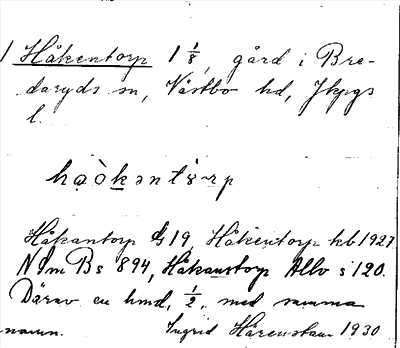 Håkentorp 1 1/8, gård i Bre-
daryds sn, Västbo hd, Jkpgs
l.
Håkantorp 19, Håkentorp kb 1927
Bs 894, Håkanstorp Allv s 120.
Därav en hmd, 1/2, med samma
namn. Ingrid Hårenstam 1930